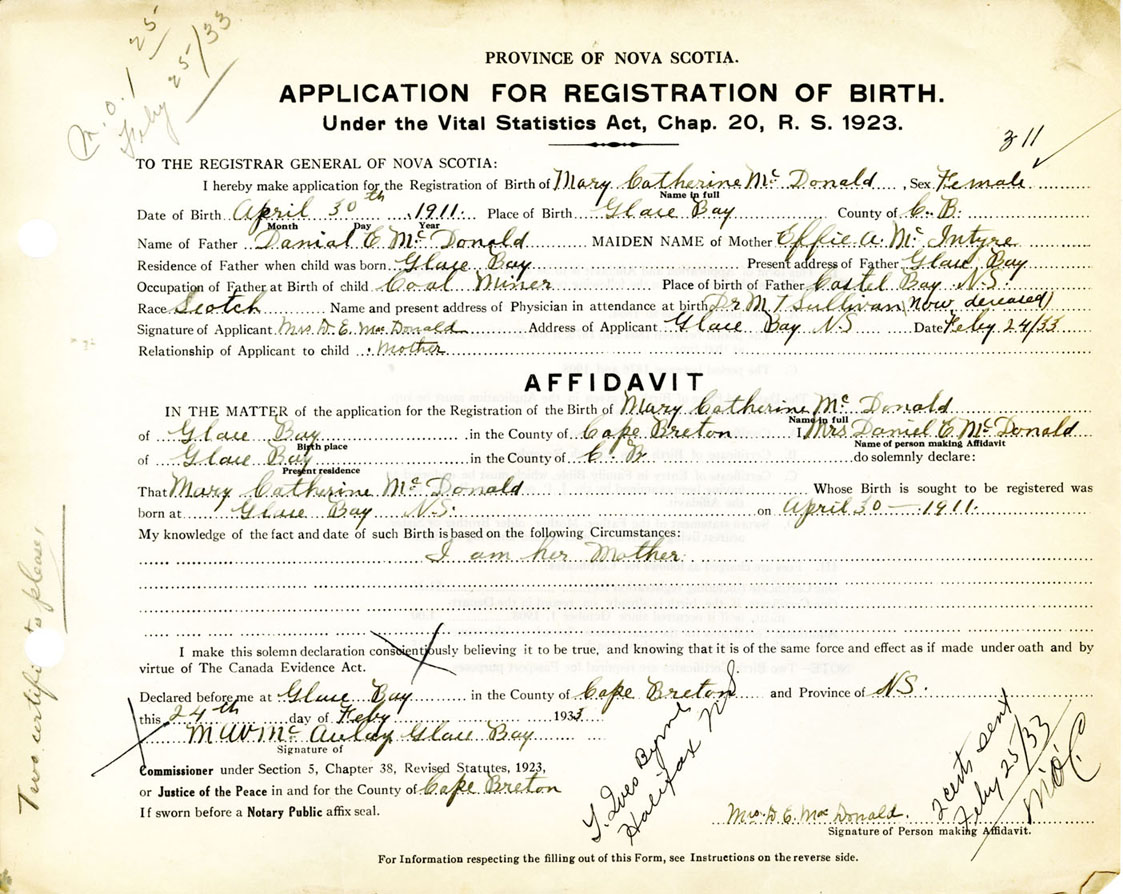 M.O. 1 25
Feby 25/33
PROVINCE OF NOVA SCOTIA.
APPLICATION FOR REGISTRATION OF BIRTH.
Under the Vital Statistics Act, Chap. 20, R. S. 1923.
311
TO THE REGISTRAR GENERAL OF NOVA SCOTIA:
I hereby make application for the Registration of Birth of Mary Catherine Mc Donald, Sex Female
Name in full
Date of Birth April 30th, 1911. Place of Birth Glace Bay County of C. B.
Month Day Year
Name of Father Danial E Mc Donald MAIDEN NAME of Mother Effie A. Mc Intyre
Residence of Father when child was born Glace Bay Present address of Father Glace Bay
Occupation of Father at Birth of child Coal Miner Place of birth of Father Castel Bay N.S.
Race Scotch Name and present address of Physician in attendance at birth Dr M. T Sullivan (now deceased)
Signature of Applicant Mrs D. E. Mac Donald Address of Applicant Glace Bay NS Date Feby 24/33
Relationship of Applicant to child Mother
AFFIDAVIT
IN THE MATTER of the application for the Registration of the Birth of Mary Catherine Mc Donald
Name in full
of Glace Bay in the County of Cape Breton I Mrs Daniel E McDonald
Birth place Name of person making Affidavit
of Glace Bay in the County of C. B. do solemnly declare:
Present residence
That Mary Catherine Mc Donald Whose Birth is sought to be registered was
born at Glace Bay N.S. on April 30 — 1911.
My knowledge of the fact and date of such Birth is based on the following Circumstances:
I am her Mother.
I make this solemn declaration conscientiously believing it to be true, and knowing that it is of the same force and effect as if made under oath and by
virtue of The Canada Evidence Act.
Declared before me at Glace Bay in the County of Cape Breton and Province of NS.
this 24th day of Feby 1933
Mc Aulay Glace Bay
Signature of
Commissioner under Section 5, Chapter 38, Revised Statutes, 1923,
or Justice of the Peace in and for the County of Cape Breton
If sworn before a Notary Public affix seal.
Mrs. D. E. Mac Donald.
Signature of Person making Affidavit.
For Information respecting the filling out of this Form, see Instructions on the reverse side.
Two certificates please!
Byrne
Halifax N S.
2 certs sent
Feby 25/33